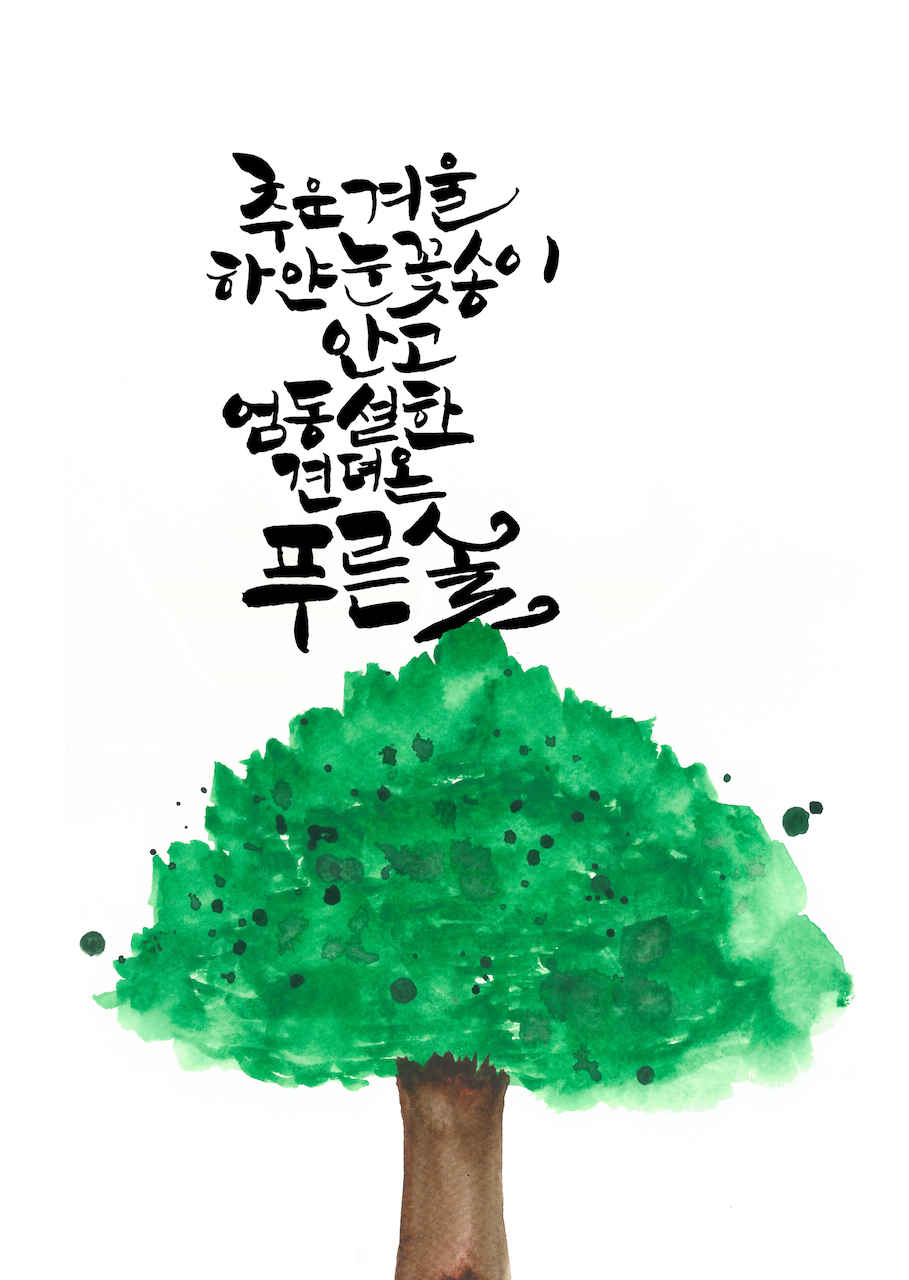 추운겨울
하얀눈꽃송이
안고
엄동설한
견뎌온
푸른솔